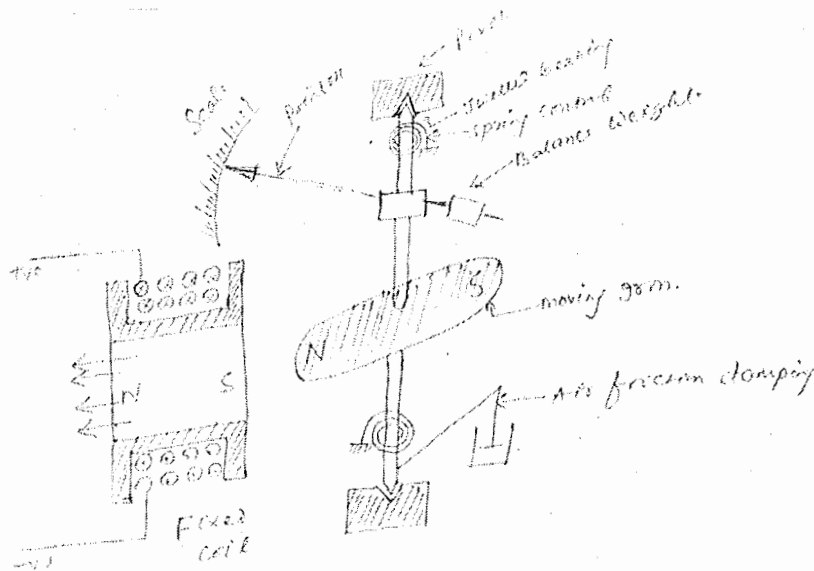 Pivot
Jwelled bearing
spring control
Balance weight.
Scale
Pointer
+ve
S
moving iron.
N
N S
Air friction damping
Fixed
coil
-ve